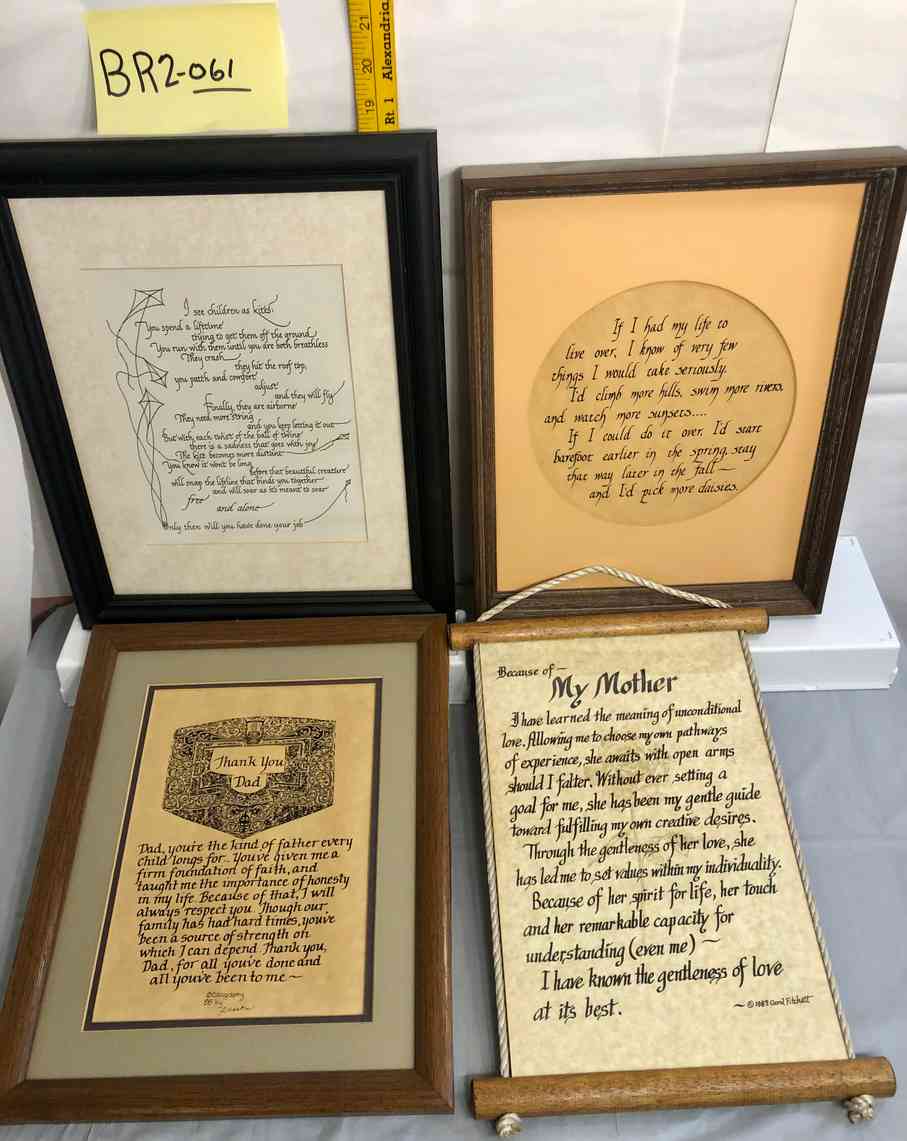 BR2-061
19 20 21
Rt. 1 Alexandria
I see children as kites.
You spend a lifetime
trying to get them off the ground
You run with them until you are both breathless
They crash
they hit the roof top,
you patch and comfort
adjust
and they will fly
Finally, they are airborne
They need more string
and you keep letting it out
But with each twist of the ball of twine
there is a sadness that goes with joy
The kite becomes more distant
You know it won't be long
before that beautiful creature
will snap the lifeline that binds you together
and will soar as it's meant to soar
free
and alone
Only then will you have done your job
If I had my life to
live over, I know of very few
things I would take seriously.
I'd climb more hills, swim more rivers,
and watch more sunsets....
If I could do it over, I'd start
barefoot earlier in the spring, stay
that way later in the fall —
and I'd pick more daisies.
Thank You
Dad
Dad, you're the kind of father every
child longs for. You've given me a
firm foundation of faith, and
taught me the importance of honesty
in my life. Because of that, I will
always respect you. Though our
family has had hard times, you've
been a source of strength on
which I can depend. Thank you,
Dad, for all you've done and
all you've been to me ~
Because of —
My Mother
I have learned the meaning of unconditional
love. Allowing me to choose my own pathways
of experience, she awaits with open arms
should I falter. Without ever setting a
goal for me, she has been my gentle guide
toward fulfilling my own creative desires.
Through the gentleness of her love, she
has led me to set values within my individuality.
Because of her spirit for life, her touch
and her remarkable capacity for
understanding (even me) ~
I have known the gentleness of love
at its best.
~ © 1983 Carol Fitchett